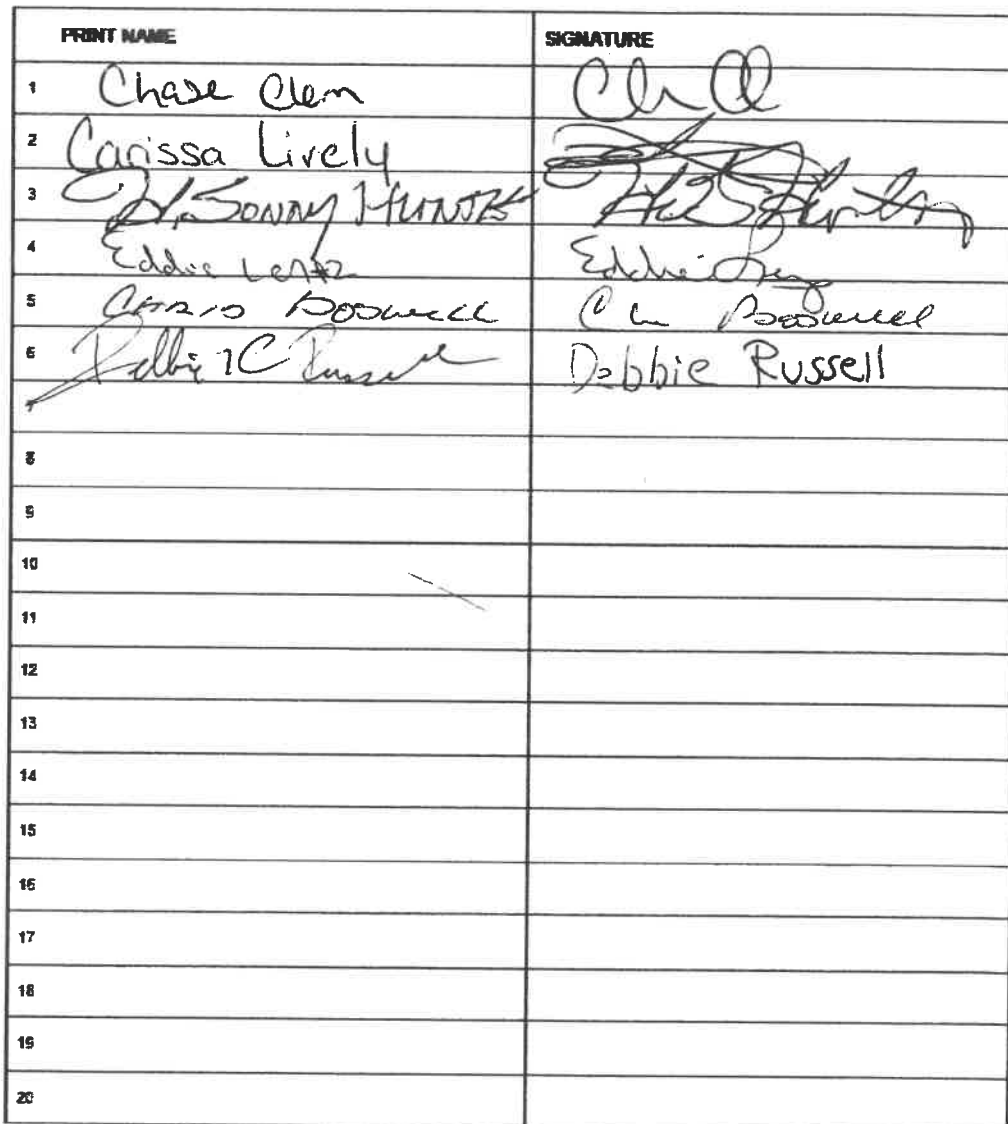 PRINT NAME SIGNATURE
1 Chase Clem
2 Carissa Lively
3 H. Sonny Hunter
4 Eddie Lentz Eddie
5 Chris Boswell Ch Boswell
6 Debbie Russell Debbie Russell
7
8
9
10
11
12
13
14
15
16
17
18
19
20